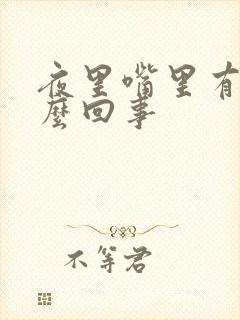 夜里嘴里有
麽回事
不等君